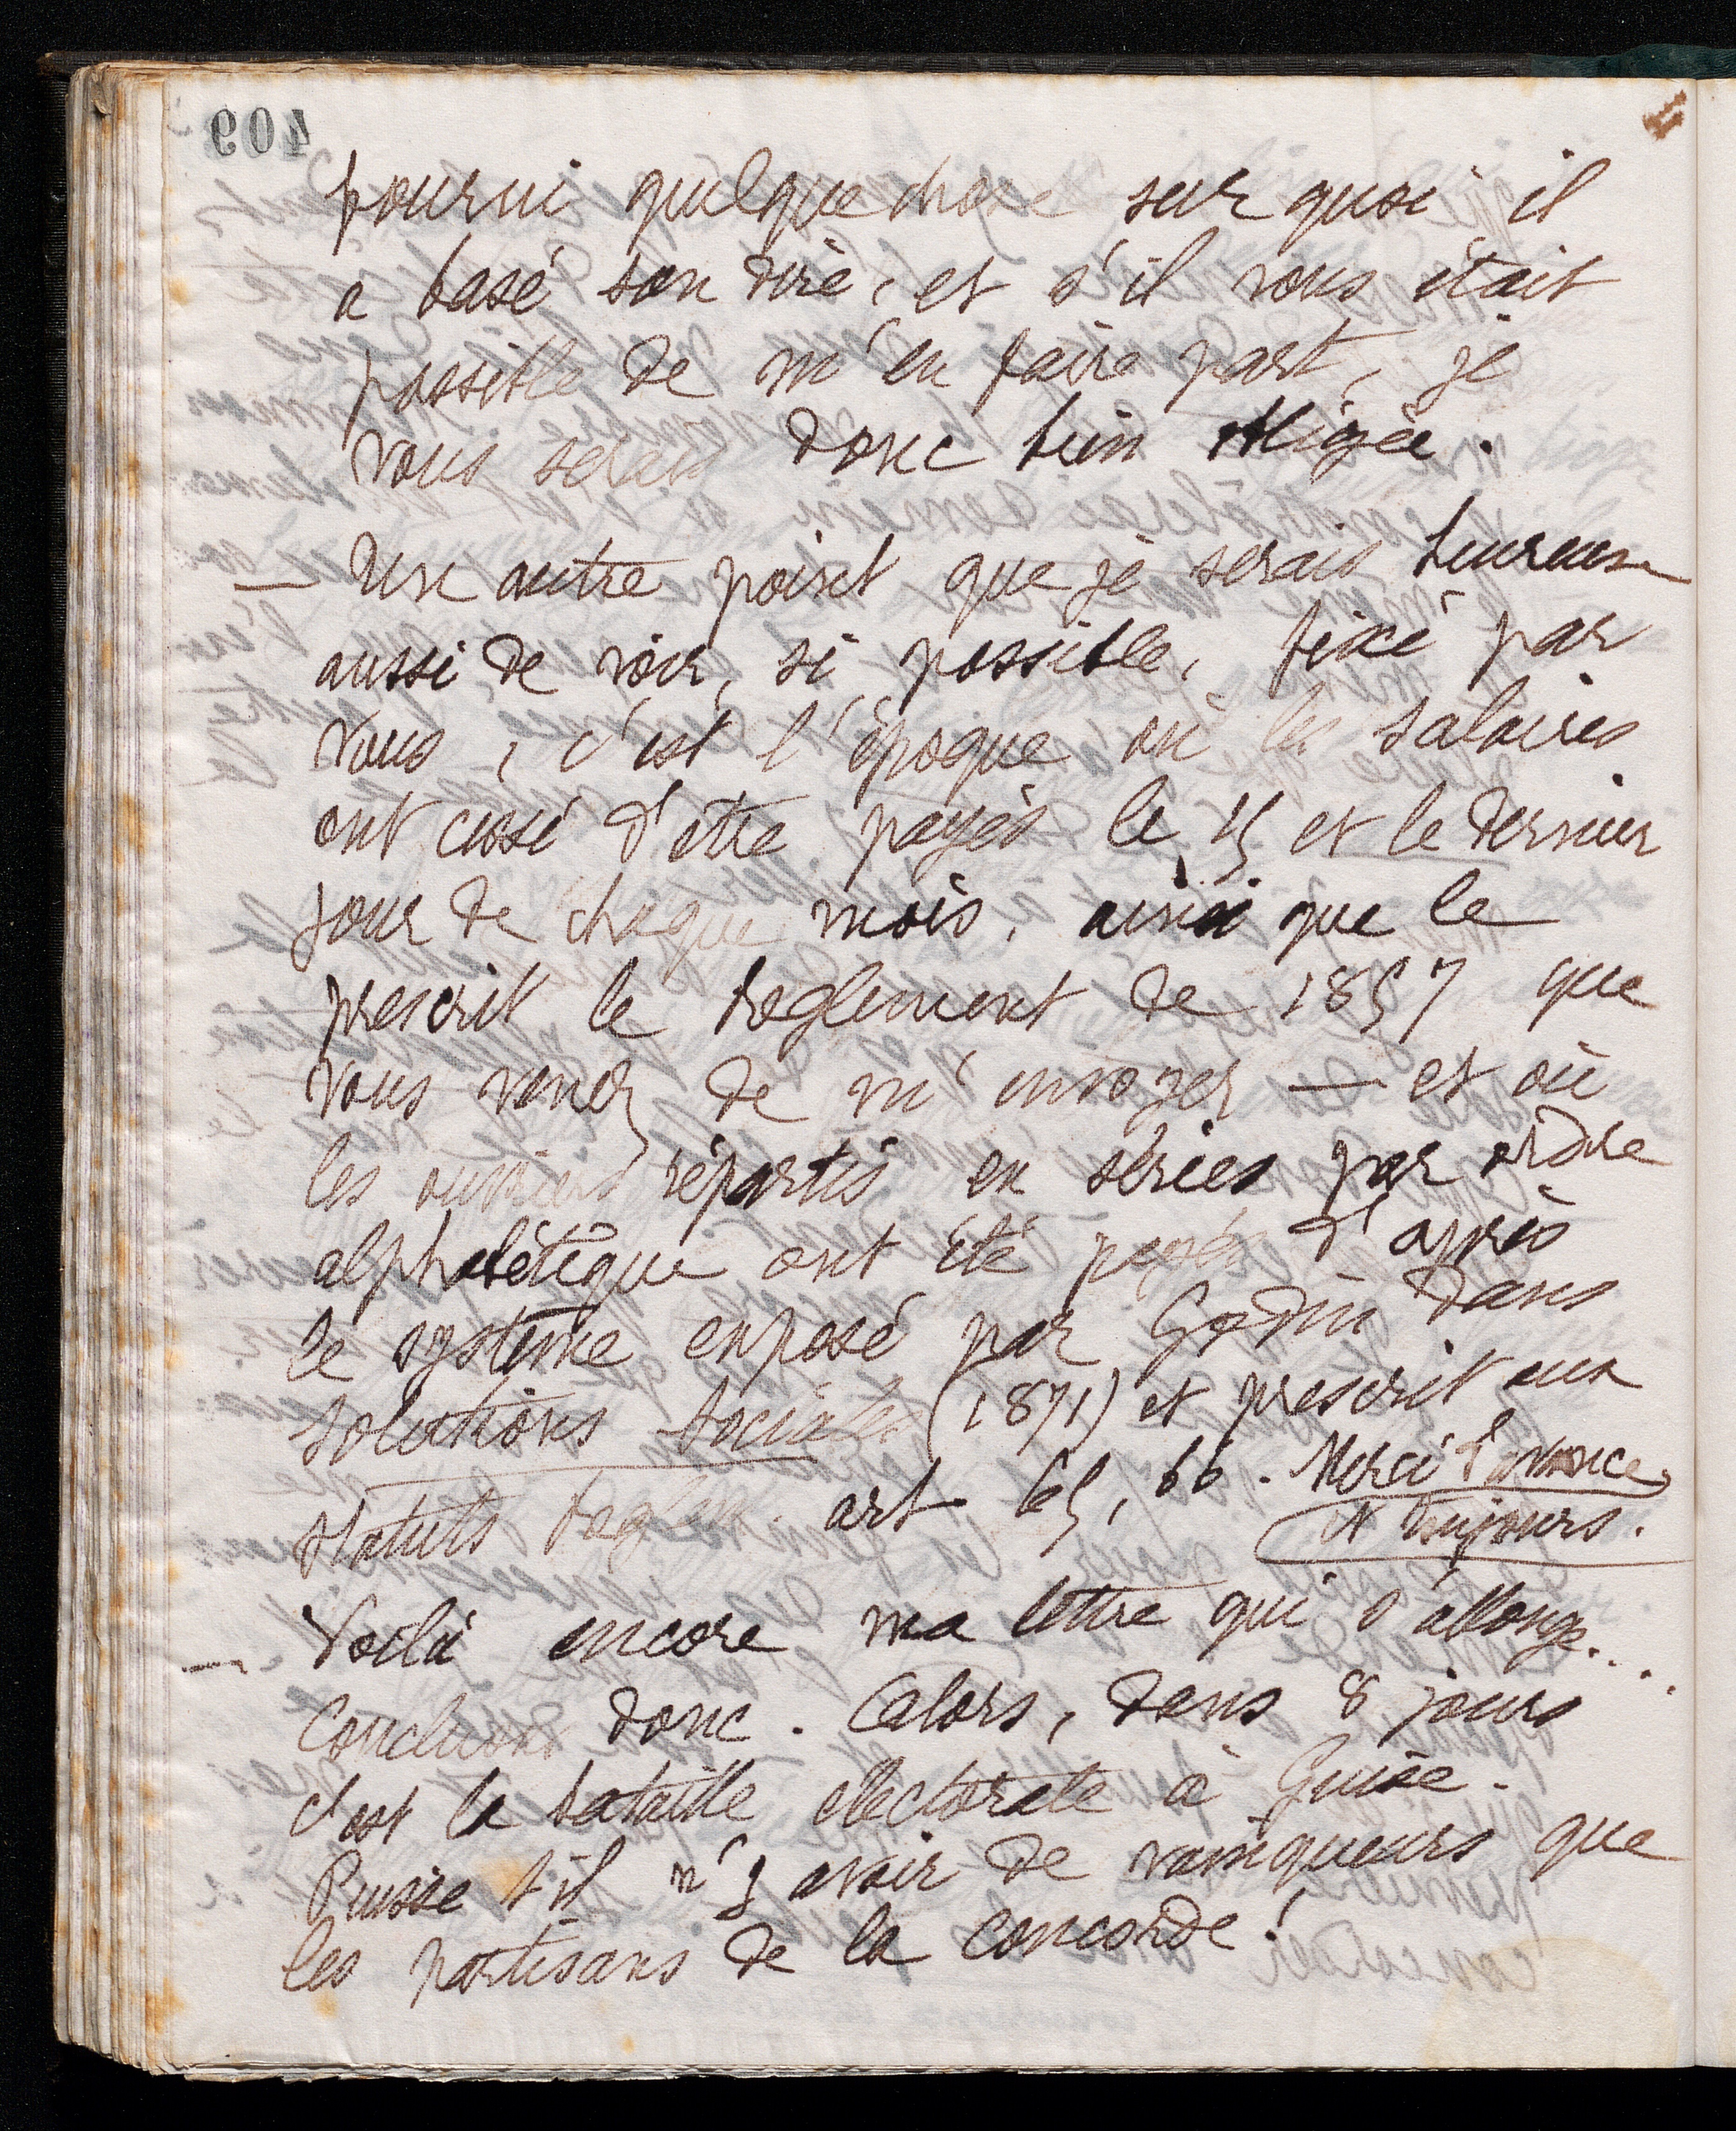 409
fourni quelque chose sur quoi il
a basé son dire, et s'il vous était
possible de m'en faire part, je
vous serais donc bien obligée.
— Un autre point que je serais heureuse
aussi de voir, si possible, fixé par
vous, c'est l'époque où les salaires
ont cessé d'être payés le 15 et le dernier
jour de chaque mois, ainsi que le
prescrit le règlement de 1857 que
vous venez de m'envoyer — et où
les ouvriers répartis en séries par ordre
alphabétique ont été payés d'après
le système exposé par Godin dans
Solutions Sociales (1871) et prescrit aux
statuts règlem. art 65, 66. Merci d'avance
et toujours.
— Voilà encore ma lettre qui s'allonge...
Concluons donc. Alors, dans 8 jours
c'est la bataille électorale à Guise.
Puisse t-il n'y avoir de vainqueurs que
les partisans de la concorde!